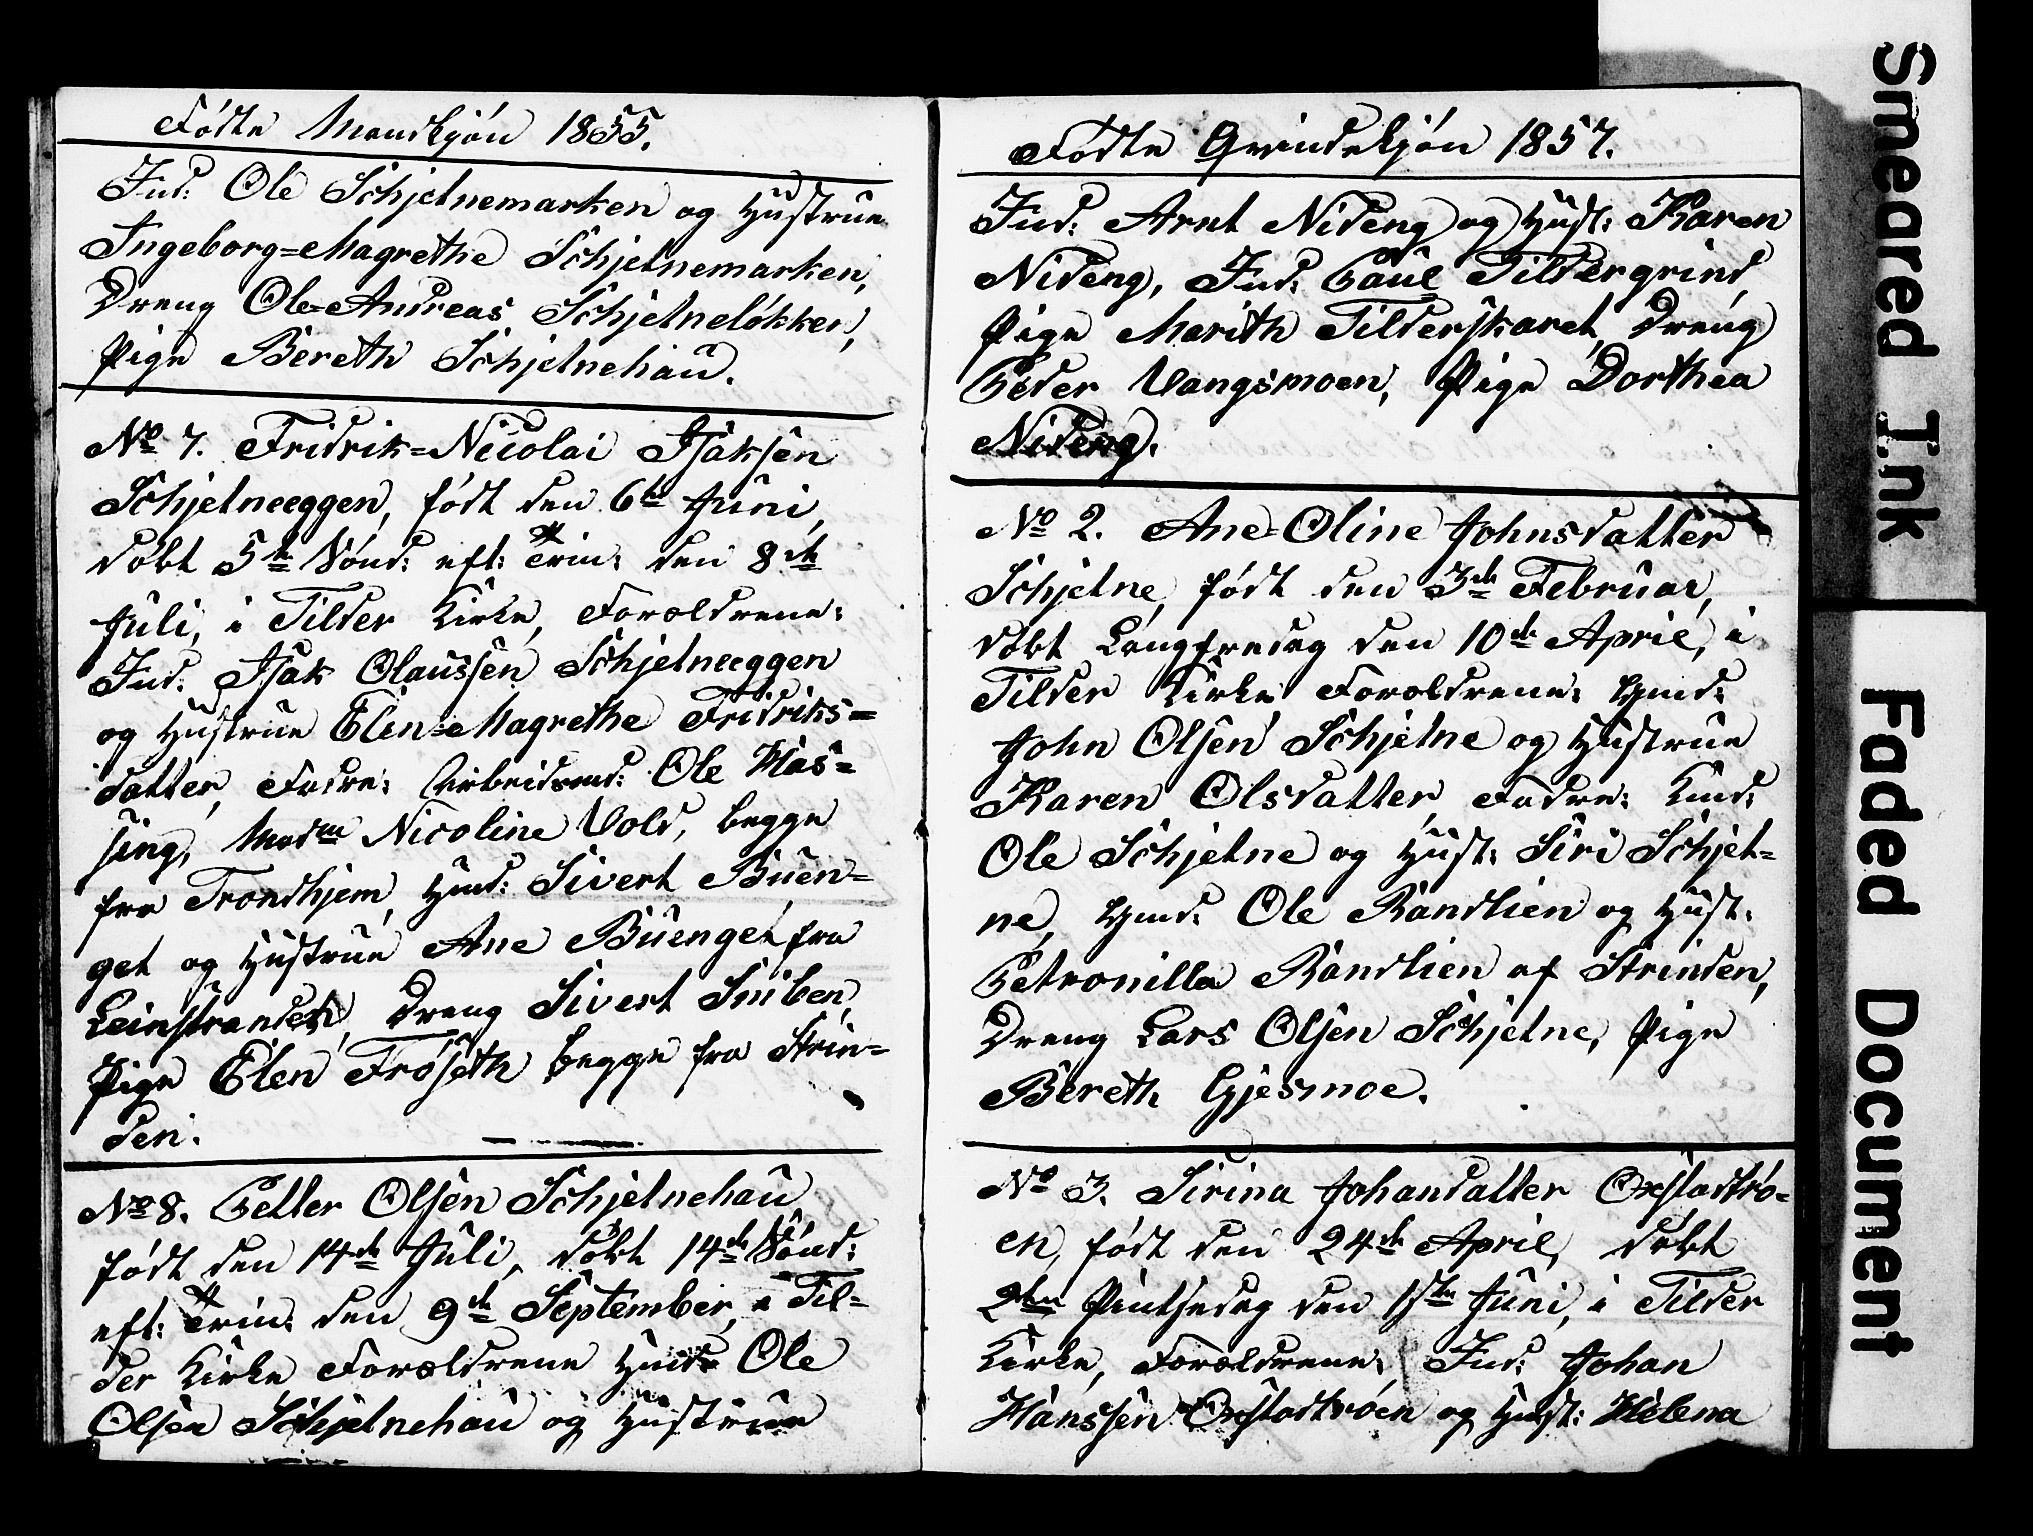 Fødte Mandkjøn 1855.
Ind: Ole Schjetnemarken og Hustrue
Ingeborg=Magrethe Schjetnemarken,
Dreng Ole=Andreas Schjetneløkken,
Pige Bereth Schjetnehau.
No 7. Fridrik=Nicolai Isaksen
Schjetneeggen, født den 6te Juni,
døbt 5te Sønd: eft: Trin: den 8de
Juli, i Tilder Kirke, Forældrene:
Ind: Isak Olaussen Schjetneeggen
og Hustrue Elen=Magrethe Fridriks=
datter, Faddre: Arbeidsmd: Ole Has=
sing, Madm Nicoline Vold, begge
fra Trondhjem, Gmd: Sivert Buen=
get og Hustrue Ane Buenget fra
Leinstranden, Dreng Sivert
Pige Elen Frøseth begge fra Strin=
den.
No 8. Petter Olsen Schjetnehau
født den 14de Juli, døbt 14de Sønd:
eft: Trin: den 9de September, i Til=
der Kirke Forældrene Ole
Olsen Schjetnehau og Hustrue
Fødte Qvindekjøn 1857.
Ind: Arnt Nideng og Hust: Karen
Nideng, Ind: Paul Tildergrind,
Pige Marith Tilderskaret, Dreng
Peder Vangsmoen, Pige Dorthea
Nideng.
No 2. Ane=Oline Johnsdatter
Schjetne, født den 3de Februar,
døbt Langfredag den 10de April, i
Tilder Kirke Forældrene: Gmd:
John Olsen Schjetne og Hustrue
Karen Olsdatter, Faddre: Kmd:
Ole Schjetne og Hust: Siri Schjet=
ne, Gmd: Ole Randlien og Hust:
Petronilla Randlien af Strinden,
Dreng Lars Olsen Schjetne, Pige
Bereth Gjesmoe.
No 3. Sirina Johansdatter Oxstadtrø=
en, født den 24de April, døbt
2den Pintsedag den 1ste Juni, i Tilder
Kirke, Forældrene: Ind: Johan
Hanssen Oxstadtrøen og Hust: Helena
Smeared Ink
Faded Document